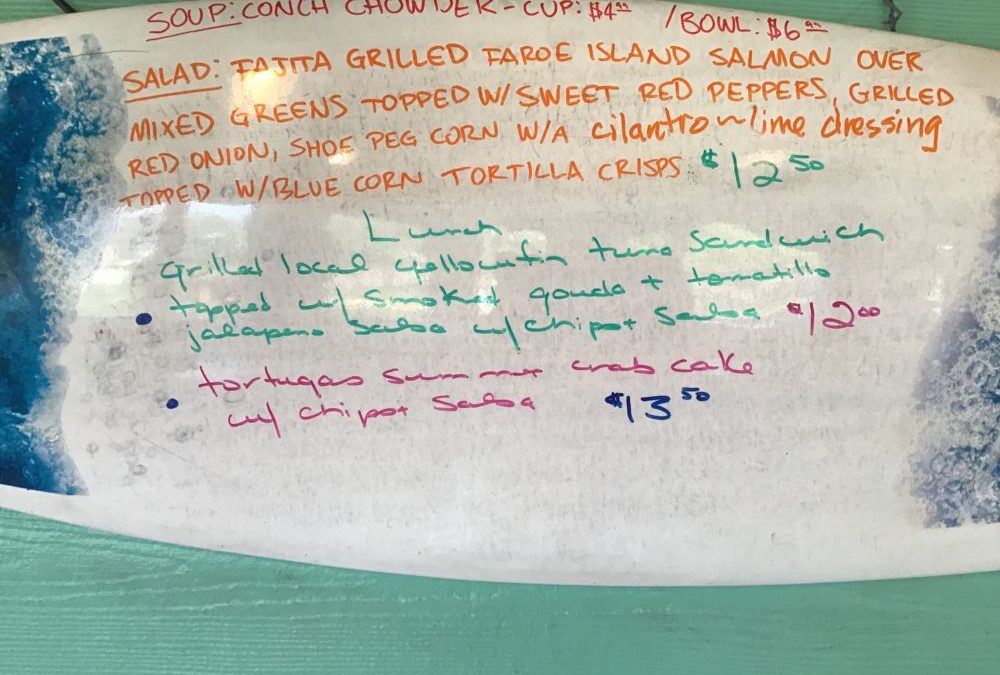 SOUP: CONCH CHOWDER - CUP: $4 /BOWL: $6
SALAD: FAJITA GRILLED FAROE ISLAND SALMON OVER
MIXED GREENS TOPPED W/ SWEET RED PEPPERS, GRILLED
RED ONION, SHOE PEG CORN W/A cilantro~lime dressing
TOPPED W/BLUE CORN TORTILLA CRISPS $12 50
Lunch
grilled local yellowfin tuna Sandwich
• topped w/ Smoked gouda + tomatillo
jalapeno Salsa w/ chips + Salsa $12 00
tortugas summer crab cake
• w/ chips + Salsa $13 50